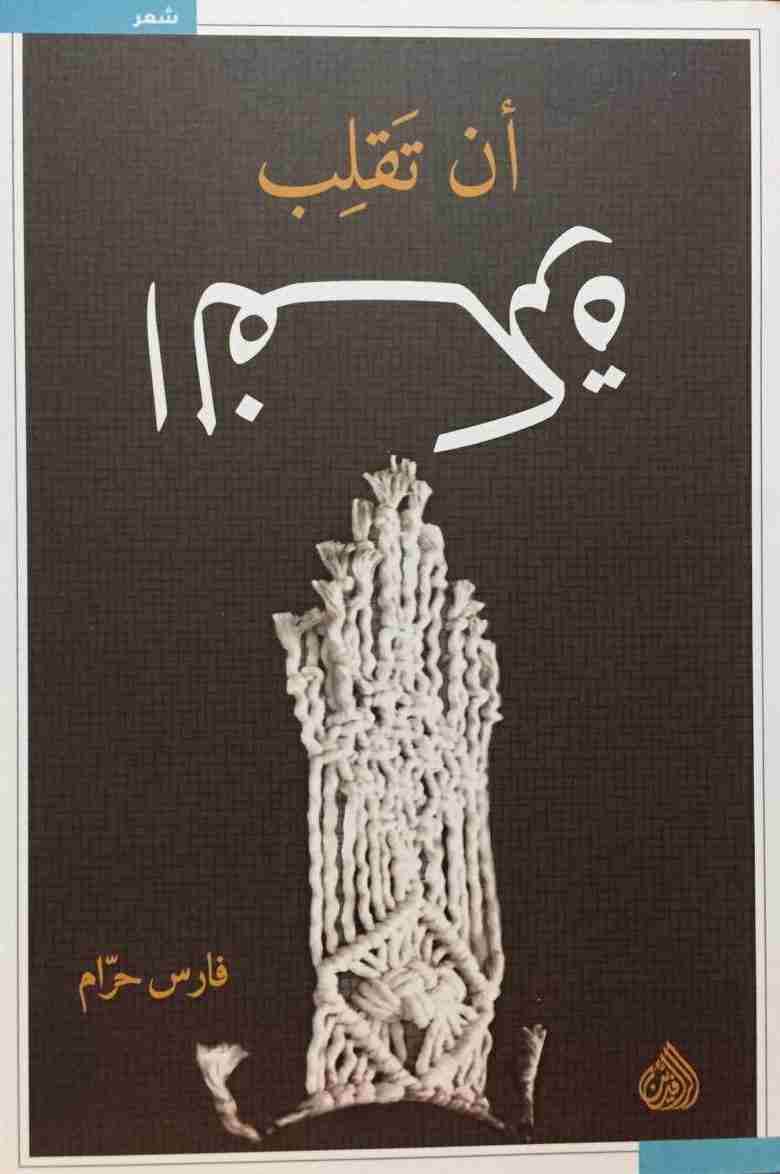 شعر
أن تَقلِب
الفكرة
فارس حرّام
الرافدين